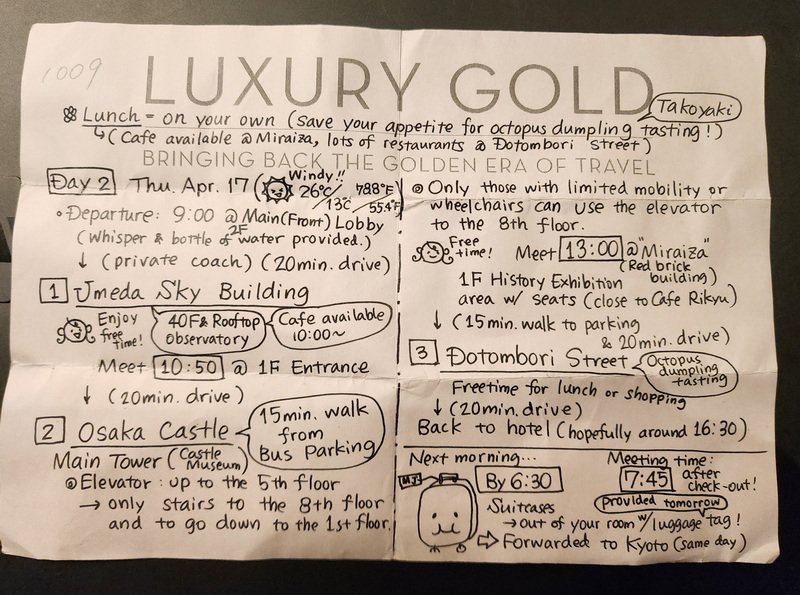 1009
LUXURY GOLD
Lunch - on your own (save your appetite for octopus dumpling tasting!)
Takoyaki
↳ (Cafe available @ Miraiza, lots of restaurants @ Dotombori Street)
BRINGING BACK THE GOLDEN ERA OF TRAVEL
Day 2 Thu. Apr. 17 (Windy!! 26°C/13°C 788°F/55.4°F)
• Departure: 9:00 @ Main (Front) Lobby
2F
(Whisper & bottle of water provided.)
↓ (private coach) (20min. drive)
1 Umeda Sky Building
Enjoy free time!
40F & Rooftop observatory
Cafe available 10:00~
Meet 10:50 @ 1F Entrance
↓ (20min. drive)
2 Osaka Castle
15min. walk from Bus Parking
Main Tower (Castle Museum)
◎ Elevator: up to the 5th floor
→ only stairs to the 8th floor
and to go down to the 1st floor.
◎ Only those with limited mobility or
wheelchairs can use the elevator
to the 8th floor.
Free time!
Meet 13:00 @ "Miraiza"
(Red brick building)
1F History Exhibition
area w/ seats (close to Cafe Rikyu)
↓ (15min. walk to parking
& 20min. drive)
3 Dotombori Street
Octopus dumpling tasting
Freetime for lunch or shopping
↓ (20min. drive)
Back to hotel (hopefully around 16:30)
Next morning...
By 6:30
Meeting time:
7:45 after check-out!
Suitcases
provided tomorrow
→ out of your room w/ luggage tag!
⇨ Forwarded to Kyoto (same day)